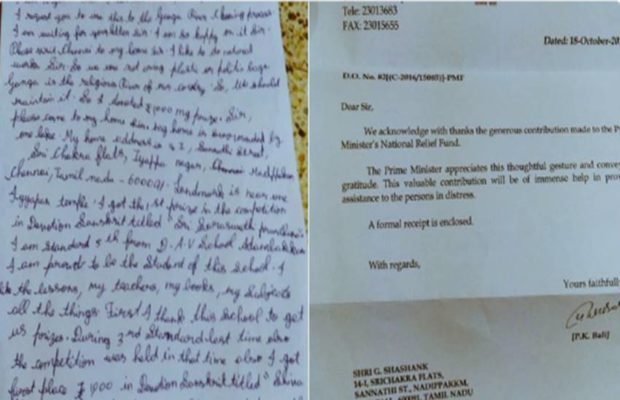 I request you to use this to the Ganga River Cleaning process
I am waiting for your letter sir. I am so happy on it sir.
Please visit Chennai to my home sir. I like to do natural
works Sir. So we are not using plastic or politic bags
Ganga is the religious River of our country. So, we should
maintain it. So I donated ₹1000 my prize. Sir,
please come to my home sir. My home is surrounded by
one lake. My home address is 14 I, Sannathi Street,
Sri Chakra flats, Iyappa nagar, Chennai Madippakkam
Chennai, Tamil nadu - 600091. Landmark is near one
Iyyapan temple. I got the 1st prize in the competition
in Devotion Sanskrit titled "Sri Saraswath prarthana"
I am Standard 5th from D.A.V School
I am proud to be the Student of this School. I
like the lessons, my teachers, my books, my subjects
all the things. First I thank this school to get
us prizes. During 3rd Standard last time also
the competition was held in that time also I got
first place ₹ 1000 in Devotion Sanskrit titled "Shiva
Tele: 23013683
FAX: 23015655
Dated: 18-October-20
D.O. No. 82[(C-2016/15083)]-PMF
Dear Sir,
We acknowledge with thanks the generous contribution made to the P
Minister's National Relief Fund.
The Prime Minister appreciates this thoughtful gesture and conve
gratitude. This valuable contribution will be of immense help in prov
assistance to the persons in distress.
A formal receipt is enclosed.
With regards,
Yours faithfull
[P.K. Bali]
SHRI G. SHASHANK
14-1, SRICHAKRA FLATS,
SANNATHI ST., NADIPPAKKM,
TAMIL NADU